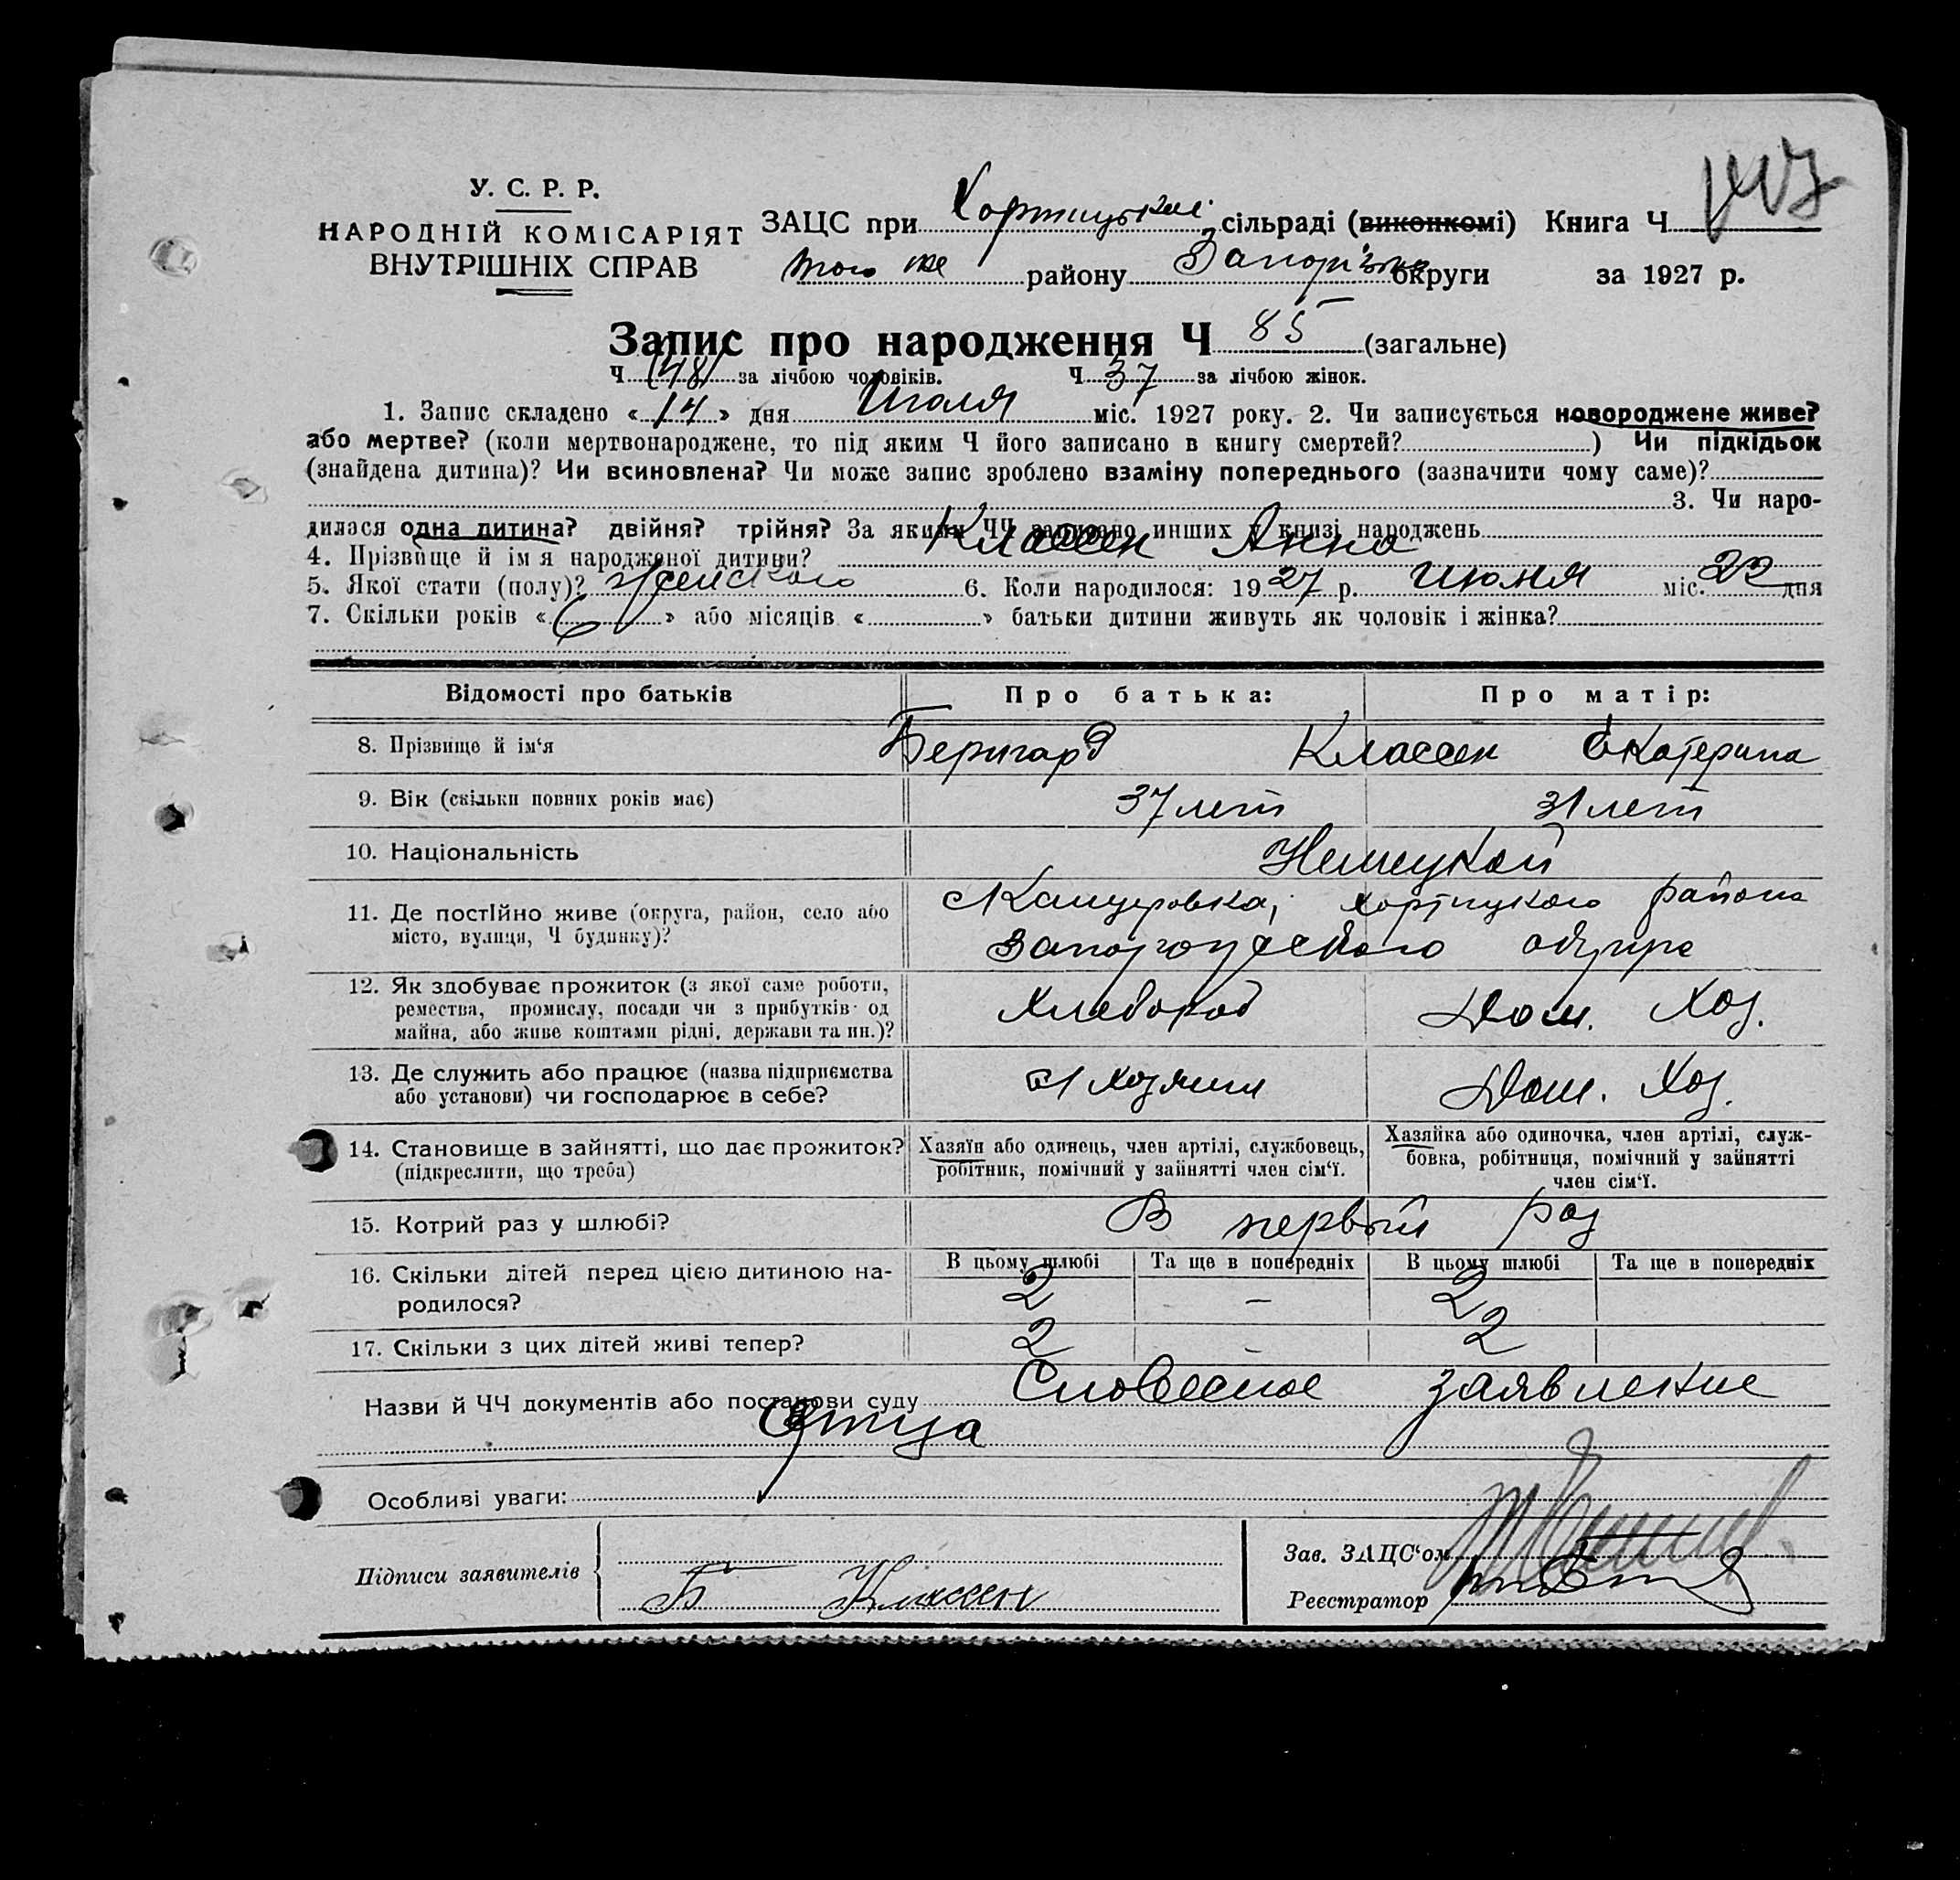 У. С. Р. Р.
НАРОДНІЙ КОМІСАРІЯТ
ВНУТРІШНІХ СПРАВ
ЗАЦС при Хортицькій сільраді (виконкомі) Книга Ч
того же району Запоріз округи за 1927 р.
Запис про народження Ч 85 (загальне)
Ч (48) за лічбою чоловіків. Ч 37 за лічбою жінок.
1. Запис складено « 14 » дня Июля міс. 1927 року. 2. Чи записується новороджене живе?
або мертве? (коли мертвонароджене, то під яким Ч його записано в книгу смертей? ) Чи підкідьок
(знайдена дитина)? Чи всиновлена? Чи може запис зроблено взаміну попереднього (зазначити чому саме)?
3. Чи наро-
дилася одна дитина? двійня? трійня? За якими ЧЧ записано инших у книзі народжень
4. Прізвище й імя народженої дитини? Классен Анна
5. Якої стати (полу)? женского 6. Коли народилося: 1927 р. июня міс. 22 дня
7. Скільки років « 6 » або місяців « » батьки дитини живуть як чоловік і жінка?
Відомості про батьків Про батька: Про матір:
8. Прізвище й ім‘я Бернгард Классен Екатерина
9. Вік (скільки повних років має) 37 лет 31 лет
10. Національність Немецкой
11. Де постійно живе (округа, район, село або
місто, вулиця, Ч будинку)?
Канцеровка, Хортицкого района
Запорожского округа
12. Як здобуває прожиток (з якої саме роботи,
ремества, промислу, посади чи з прибутків од
майна, або живе коштами рідні, держави та ин.)?
Хлебороб Дом. Хоз.
13. Де служить або працює (назва підприємства
або установи) чи господарює в себе?
Хозяин Дом. Хоз.
14. Становище в зайнятті, що дає прожиток?
(підкреслити, що треба)
Хазяїн або одинець, член артілі, службовець,
робітник, помічний у зайнятті член сім‘ї.
Хазяйка або одиночка, член артілі, служ-
бовка, робітниця, помічний у зайнятті
член сім‘ї.
15. Котрий раз у шлюбі? В первый раз
16. Скільки дітей перед цією дитиною на-
родилося?
В цьому шлюбі Та ще в попередніх В цьому шлюбі Та ще в попередніх
2 – 2
17. Скільки з цих дітей живі тепер? 2 - 2
Назви й ЧЧ документів або постанови суду Словесное заявление
Отца
Особливі уваги:
Підписи заявителів
Б Классен
Зав. ЗАЦС‘ом
Реєстратор